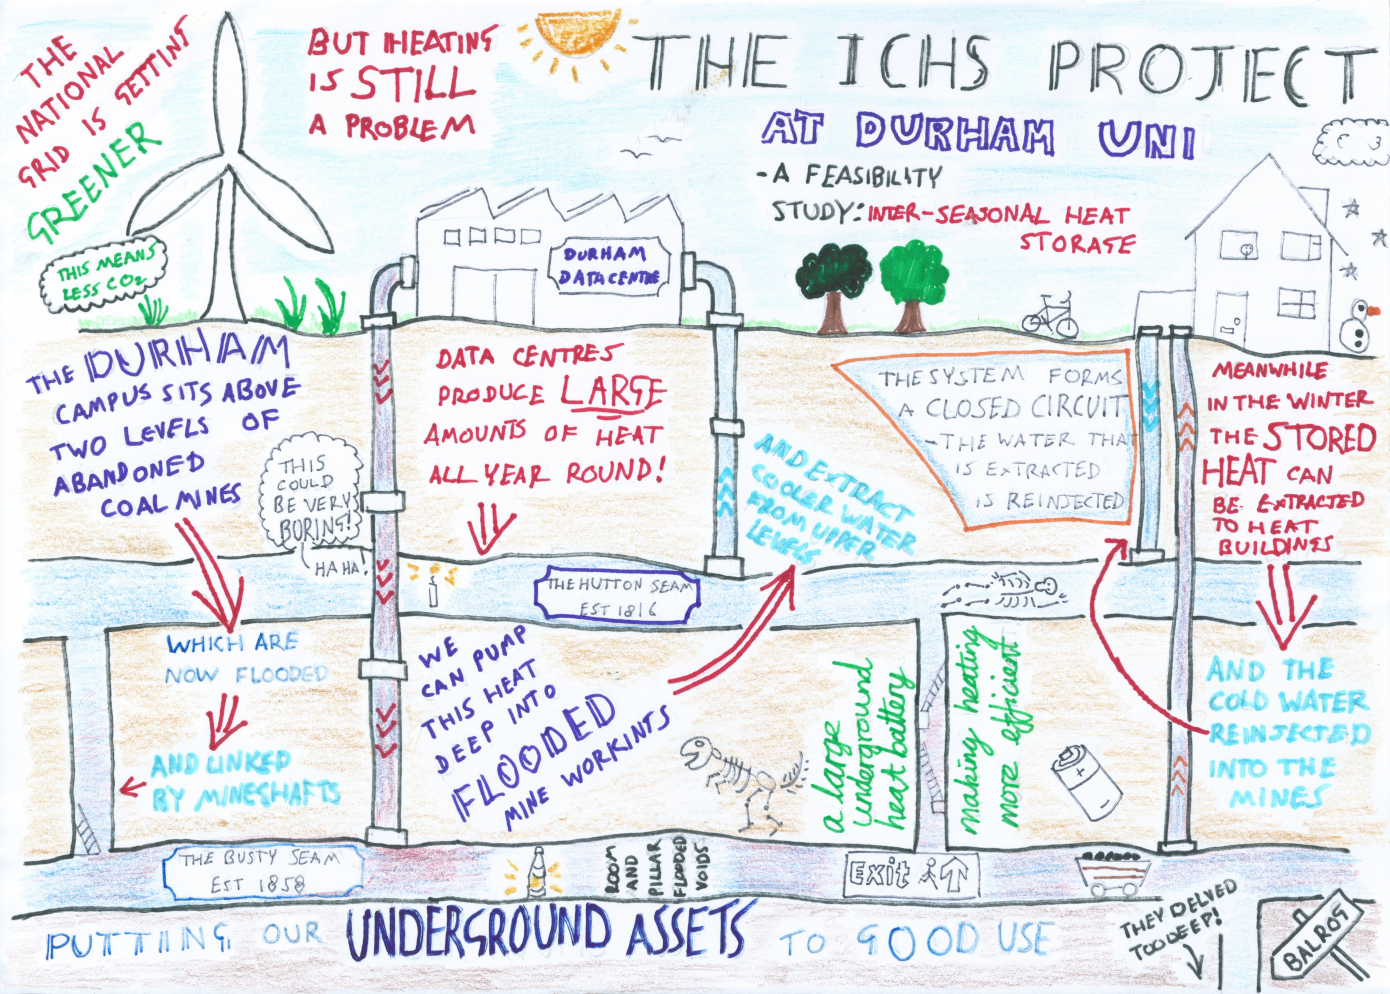 THE
NATIONAL
GRID IS GETTING
GREENER
THIS MEANS
LESS CO2
BUT HEATING
IS STILL
A PROBLEM
THE ICHS PROJECT
AT DURHAM UNI
- A FEASIBILITY
STUDY: INTER-SEASONAL HEAT
STORAGE
DURHAM
DATACENTRE
THE DURHAM
CAMPUS SITS ABOVE
TWO LEVELS OF
ABANDONED
COAL MINES
THIS
COULD
BE VERY
BORING!
HA HA!
WHICH ARE
NOW FLOODED
AND LINKED
BY MINESHAFTS
DATA CENTRES
PRODUCE LARGE
AMOUNTS OF HEAT
ALL YEAR ROUND!
THE HUTTON SEAM
EST 1816
WE
CAN PUMP
THIS HEAT
DEEP INTO
FLOODED
MINE WORKINTS
AND EXTRACT
COOLER WATER
FROM UPPER
LEVELS
THE SYSTEM FORMS
A CLOSED CIRCUIT
- THE WATER THAT
IS EXTRACTED
IS REINJECTED
MEANWHILE
IN THE WINTER
THE STORED
HEAT CAN
BE EXTRACTED
TO HEAT
BUILDINGS
AND THE
COLD WATER
REINJECTED
INTO THE
MINES
a large
underground
heat battery
making heating
more efficient
THE BUSTY SEAM
EST 1858
ROOM
AND
PILLAR
FLOODED
VOIDS
Exit
THEY DELVED
TOO DEEP!
BALROG
PUTTING OUR UNDERGROUND ASSETS TO GOOD USE